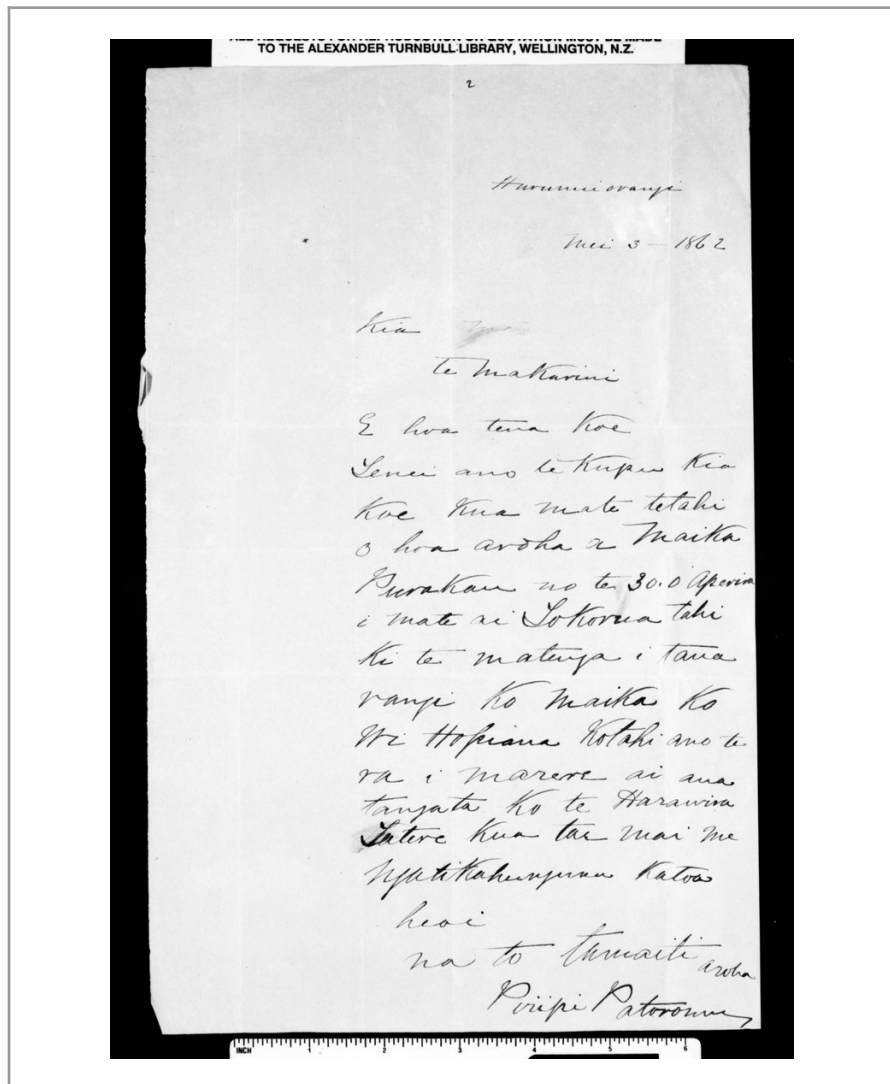 TO THE ALEXANDER TURNBULL LIBRARY, WELLINGTON, N.Z.
2
Hurunuiorangi
Mei 3 - 1862
Kia
te Makarini
E hoa tena Koe
Tenei ano te Kupu Kia
Koe Kua mate tetahi
o hoa aroha a Maika
Purakau no te 30.0 Aperira
i mate ai Tokorua tahi
Ki te matenga i taua
rangi Ko Maika Ko
Wi Hopiana Kotahi ano te
ra i marere ai aua
tangata Ko te Harawira
Tatere Kua tae mai me
NgatiKahungunu Katoa
heoi
na to tamaiti aroha
Piripi Patoromu
INCH 1 2 3 4 5 6